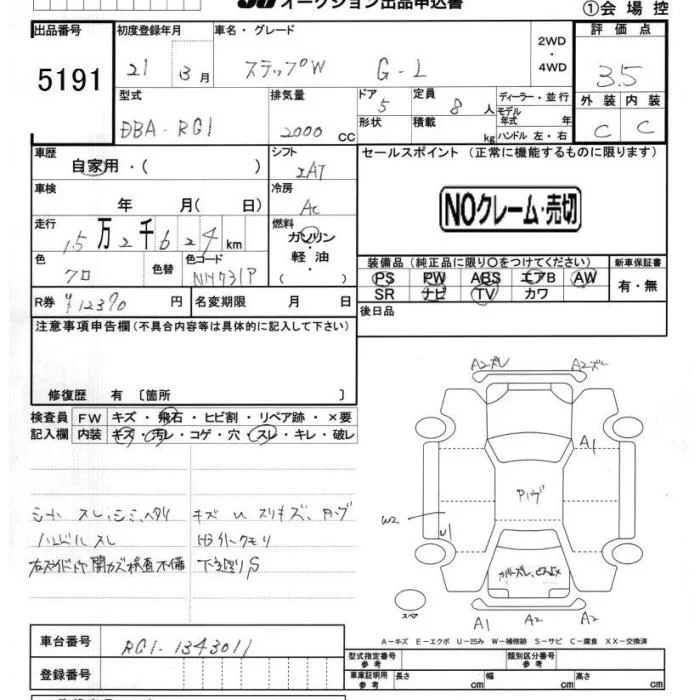 オークション出品申込書
①会場控
出品番号 初度登録年月 車名・グレード 2WD・4WD 評価点
5191 21年 3月 ステップW G-L 3.5
型式 排気量 ドア 定員 ディーラー・並行 外装 内装
DBA-RG1 2000 CC 5 8人 モデル年式 年 C C
形状 積載 kg ハンドル 左・右
車歴 シフト セールスポイント (正常に機能するものに限ります)
自家用・( ) IAT
車検 冷房
年 月( 日) AC
NOクレーム・売切
走行 燃料
15万2千624km ガソリン・軽油・( )
色 色替 色コード 装備品(純正品に限り○をつけてください) 新車保証書
クロ NH731P PS PW ABS エアB AW 有・無
SR ナビ TV カワ
R券 ¥12370円 名変期限 月 日 後日品
注意事項申告欄(不具合内容等は具体的に記入して下さい)
修復歴 有 〔箇所 〕
検査員 FW キズ・飛石・ヒビ割・リペア跡・×要
記入欄 内装 キズ・汚レ・コゲ・穴・スレ・キレ・破レ
シート スレ,シミ,ヘタリ キズ U スリキズ、
ハンドル スレ クモリ
下廻りS
A2ズレ A2ズレ
A1
W2
U1
スペア
A1 A2 A2
A-キズ E-エクボ U-凹み W-補修跡 S-サビ C-腐食 XX-交換済
車台番号 RG1-1343011
型式指定番号 参考 類別区分番号 参考
登録番号
車庫証明用 参考 長さ cm 幅 cm 高さ cm